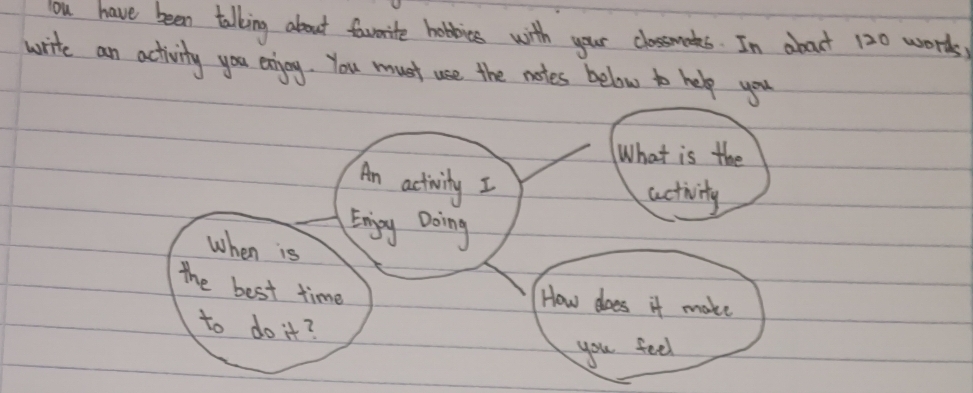 You have been talking about favorite hobbies with your classmates. In about 120 words,
write an activity you enjoy. You must use the notes below to help you
An activity I
Enjoy Doing
What is the
activity
When is
the best time
to do it?
How does it make
you feel